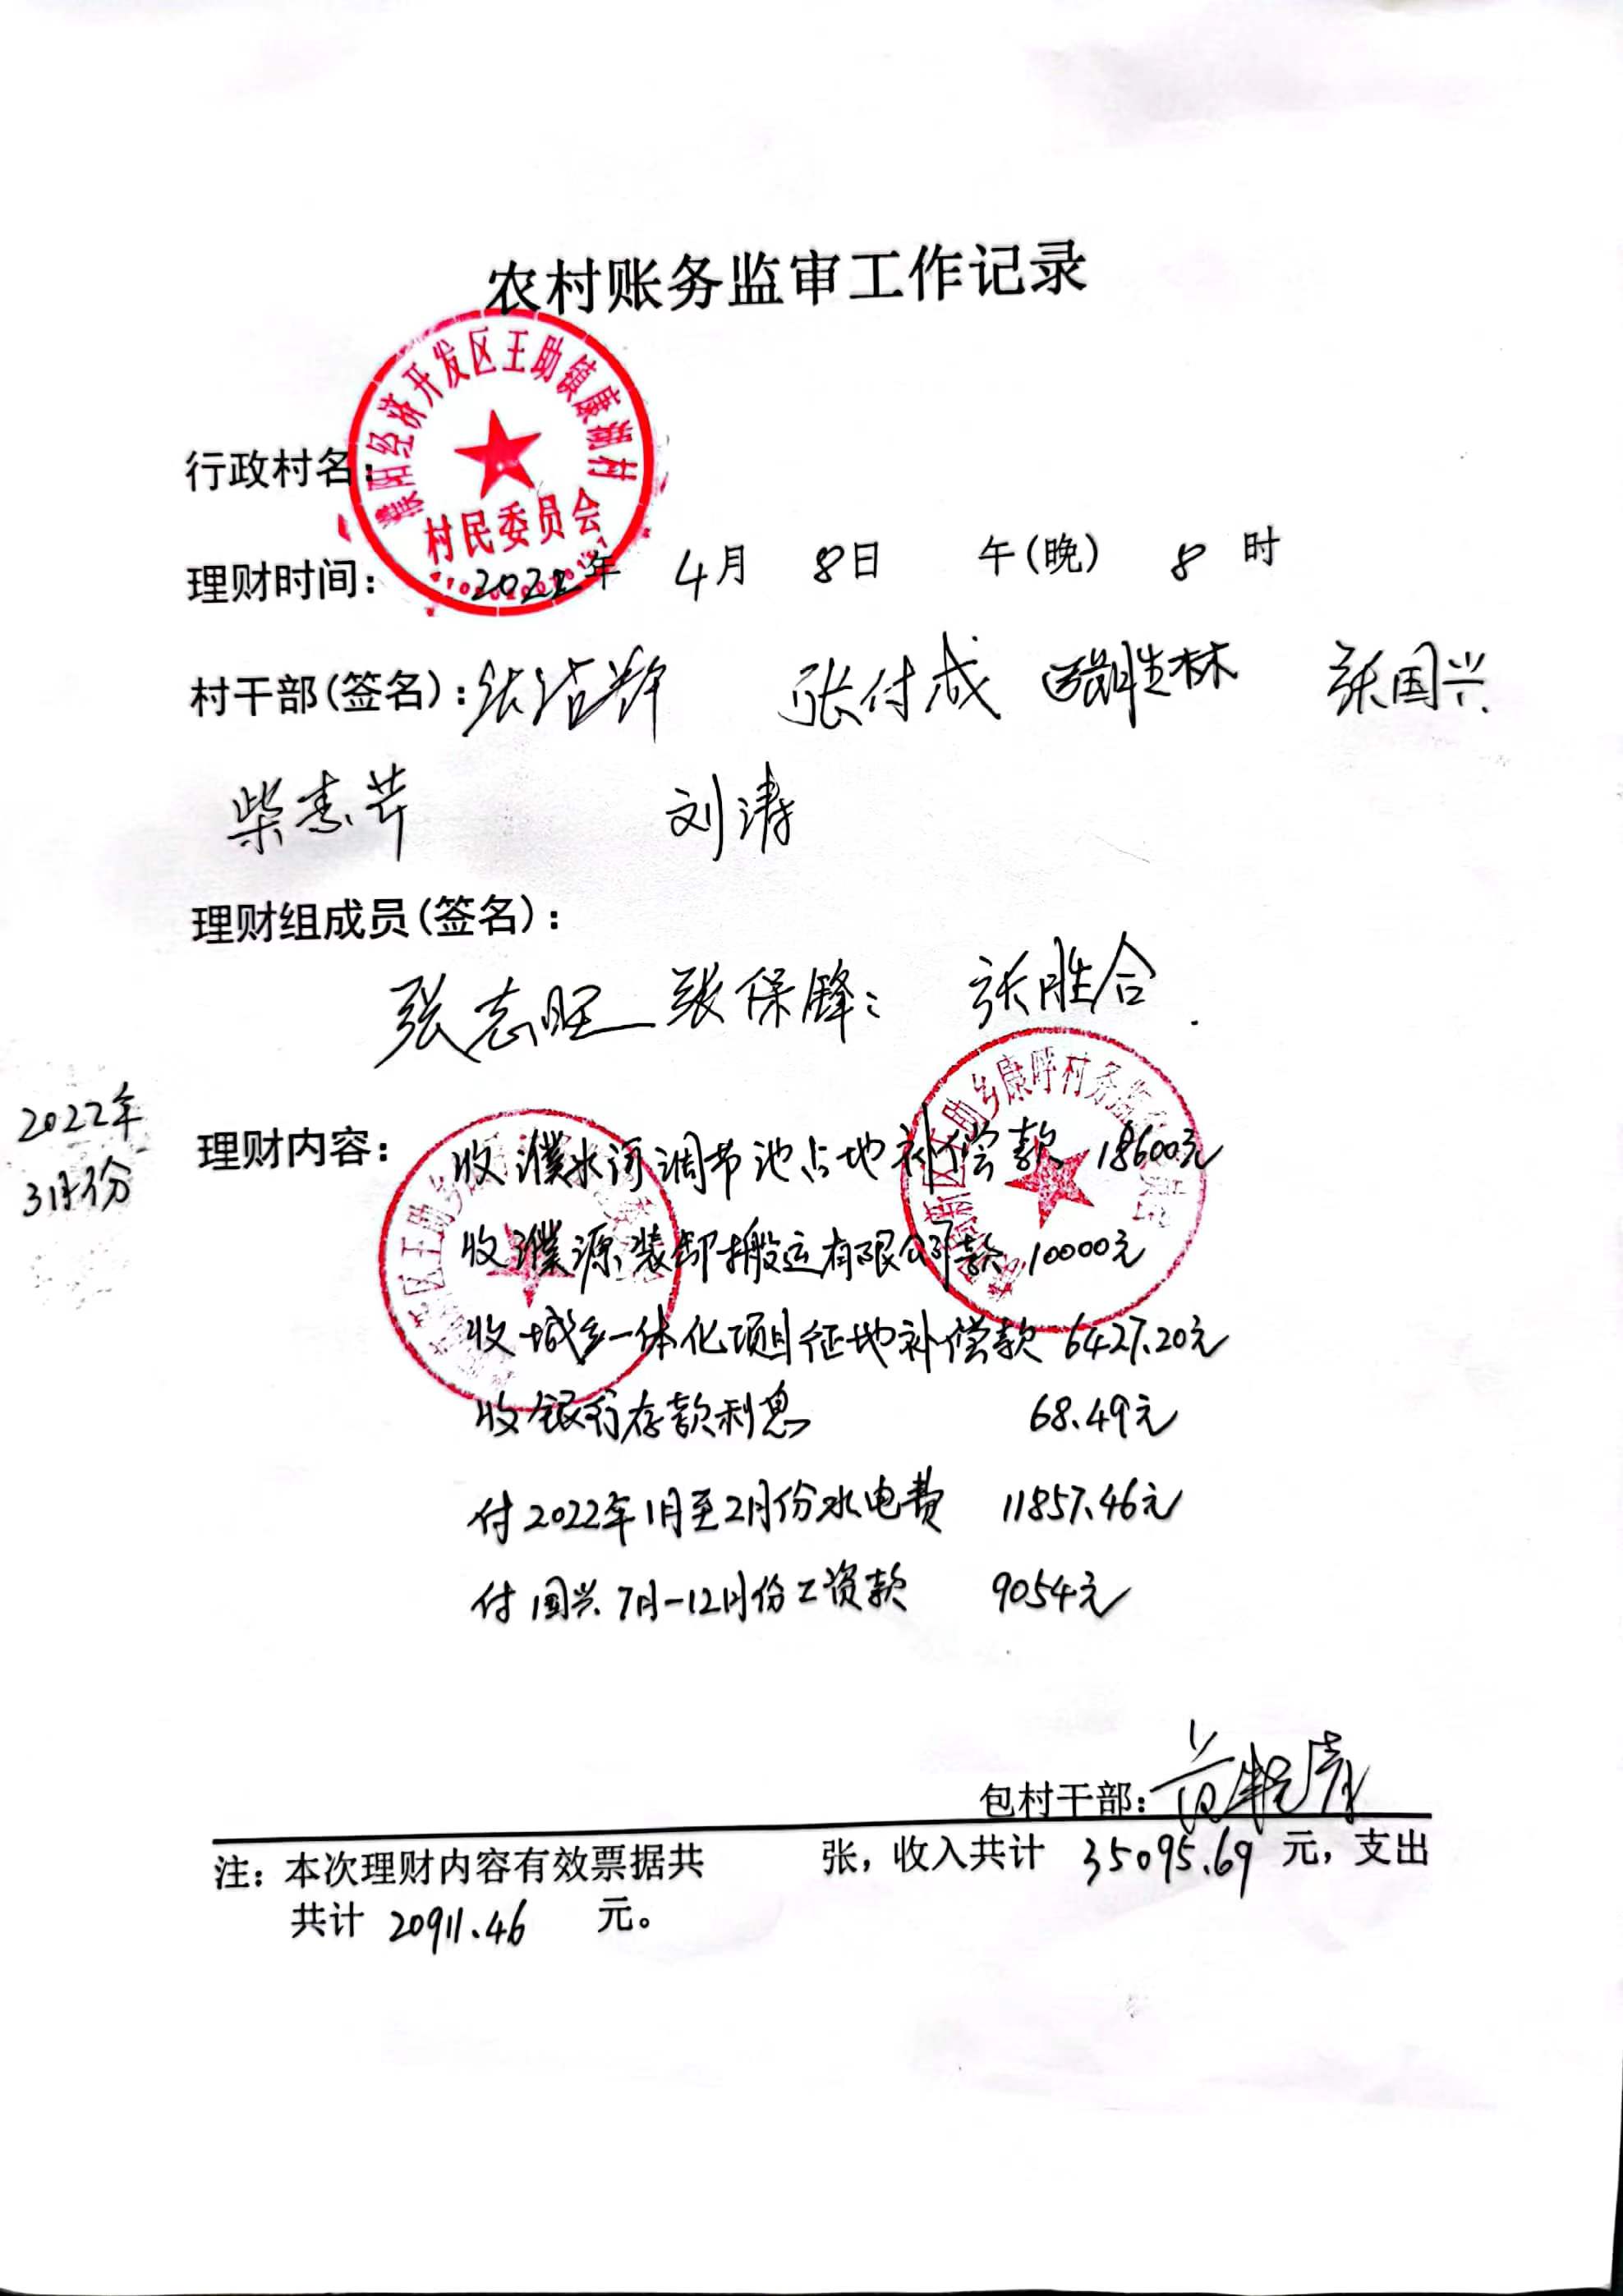 农村账务监审工作记录
濮阳经济开发区王助镇康呼村
村民委员会
行政村名:
理财时间: 2022年 4月 8日 午(晚) 8 时
村干部(签名): 张洁 张付成 胜林 张国兴
柴素芹 刘涛
理财组成员(签名):
张志旺 张保锋 张胜合
2022年
3月份
理财内容: 收濮水河调节池占地补偿款 18600元
收濮源装卸搬运有限公司款 10000元
收城乡一体化项目征地补偿款 6427.20元
收银行存款利息 68.49元
付2022年1月至2月份水电费 11857.46元
付国兴7月-12月份工资款 9054元
王助乡康呼村务监
区王助乡
包村干部:
注: 本次理财内容有效票据共 张, 收入共计 35095.69 元, 支出
共计 20911.46 元。